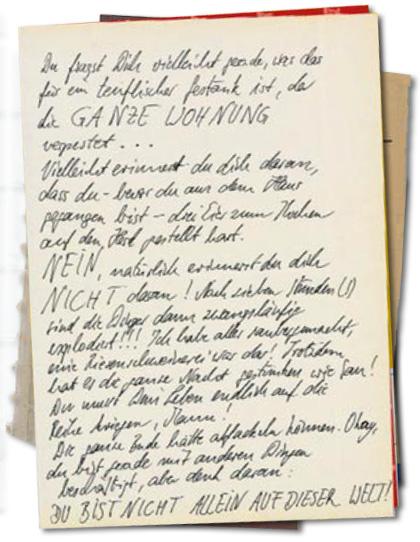 Du fragst Dich vielleicht gerade, was das
für ein teuflischer Gestank ist, der
die GANZE WOHNUNG
verpestet...
Vielleicht erinnerst du dich daran,
dass du - bevor du aus dem Haus
gegangen bist - drei Eier zum Kochen
auf den Herd gestellt hast.
NEIN, natürlich erinnerst du dich
NICHT daran! Nach sieben Stunden (!)
sind die Dinger dann zwangsläufig
explodiert!!! Ich habe alles saubergemacht,
eine Riesenschweinerei war das! Trotzdem
hat es die ganze Nacht gestunken wie Sau!
Du musst Dein Leben endlich auf die
Reihe kriegen, Mann!
Die ganze Bude hätte abfackeln können. Okay,
du bist gerade mit anderen Dingen
beschäftigt, aber denk daran:
DU BIST NICHT ALLEIN AUF DIESER WELT!